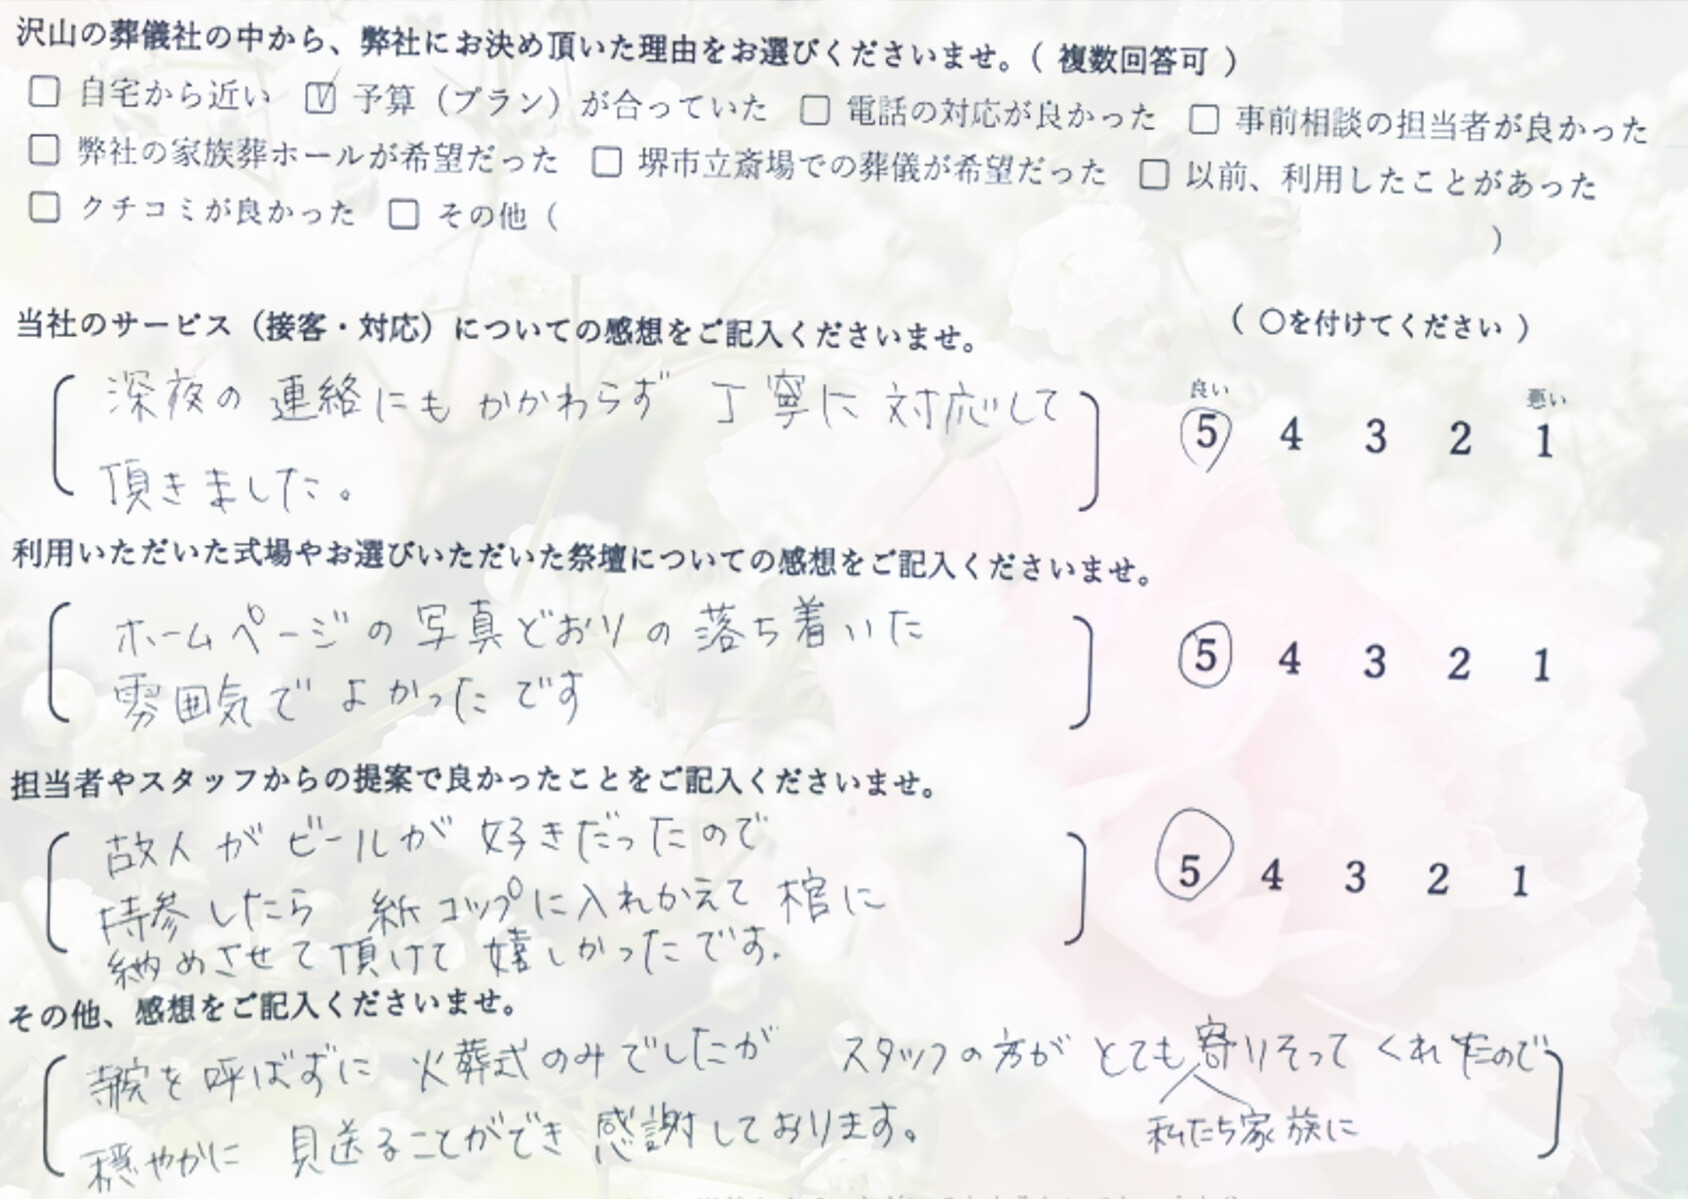 沢山の葬儀社の中から、弊社にお決め頂いた理由をお選びくださいませ。（ 複数回答可 ）
□ 自宅から近い ☑ 予算（プラン）が合っていた □ 電話の対応が良かった □ 事前相談の担当者が良かった
□ 弊社の家族葬ホールが希望だった □ 堺市立斎場での葬儀が希望だった □ 以前、利用したことがあった
□ クチコミが良かった □ その他（ ）
当社のサービス（接客・対応）についての感想をご記入くださいませ。 （ ○を付けてください ）
良い 悪い
深夜の連絡にもかかわらず 丁寧に対応して
5 4 3 2 1
頂きました。
利用いただいた式場やお選びいただいた祭壇についての感想をご記入くださいませ。
ホームページの写真どおりの落ち着いた
5 4 3 2 1
雰囲気でよかったです
担当者やスタッフからの提案で良かったことをご記入くださいませ。
故人がビールが好きだったので
5 4 3 2 1
持参したら 紙コップに入れかえて棺に
納めさせて頂けて嬉しかったです.
その他、感想をご記入くださいませ。
寺院を呼ばずに 火葬式のみでしたが スタッフの方がとても寄りそってくれたので
私たち家族に
穏やかに 見送ることができ感謝しております。